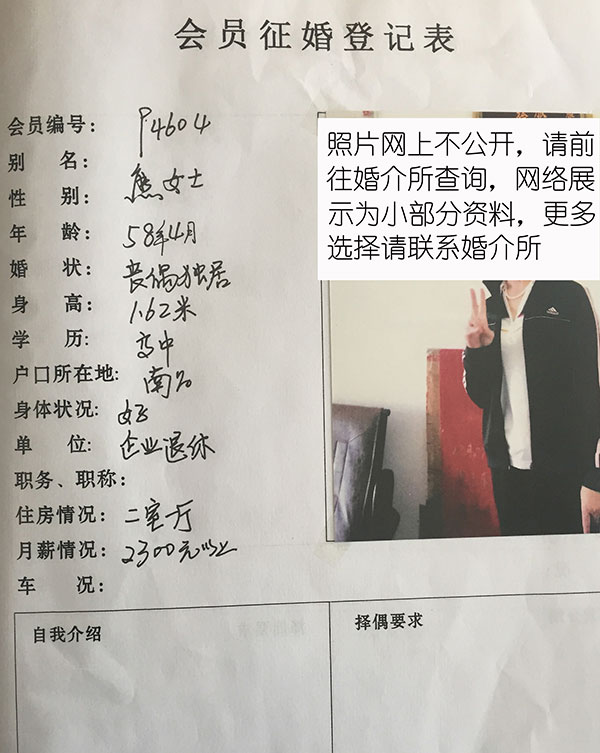 会员征婚登记表
会员编号：P4604
别 名：
熊女士
性 别：
年 龄：58年4月
婚 状：丧偶独居
身 高：1.62米
学 历：高中
户口所在地：南昌
身体状况：好
单 位：企业退休
职务、职称：
住房情况：二室一厅
月薪情况：2300元以上
车 况：
自我介绍
择偶要求
照片网上不公开，请前
往婚介所查询，网络展
示为小部分资料，更多
选择请联系婚介所